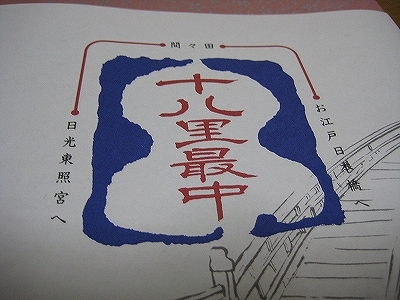 間々田
お江戸日本橋へ
十八里最中
日光東照宮へ